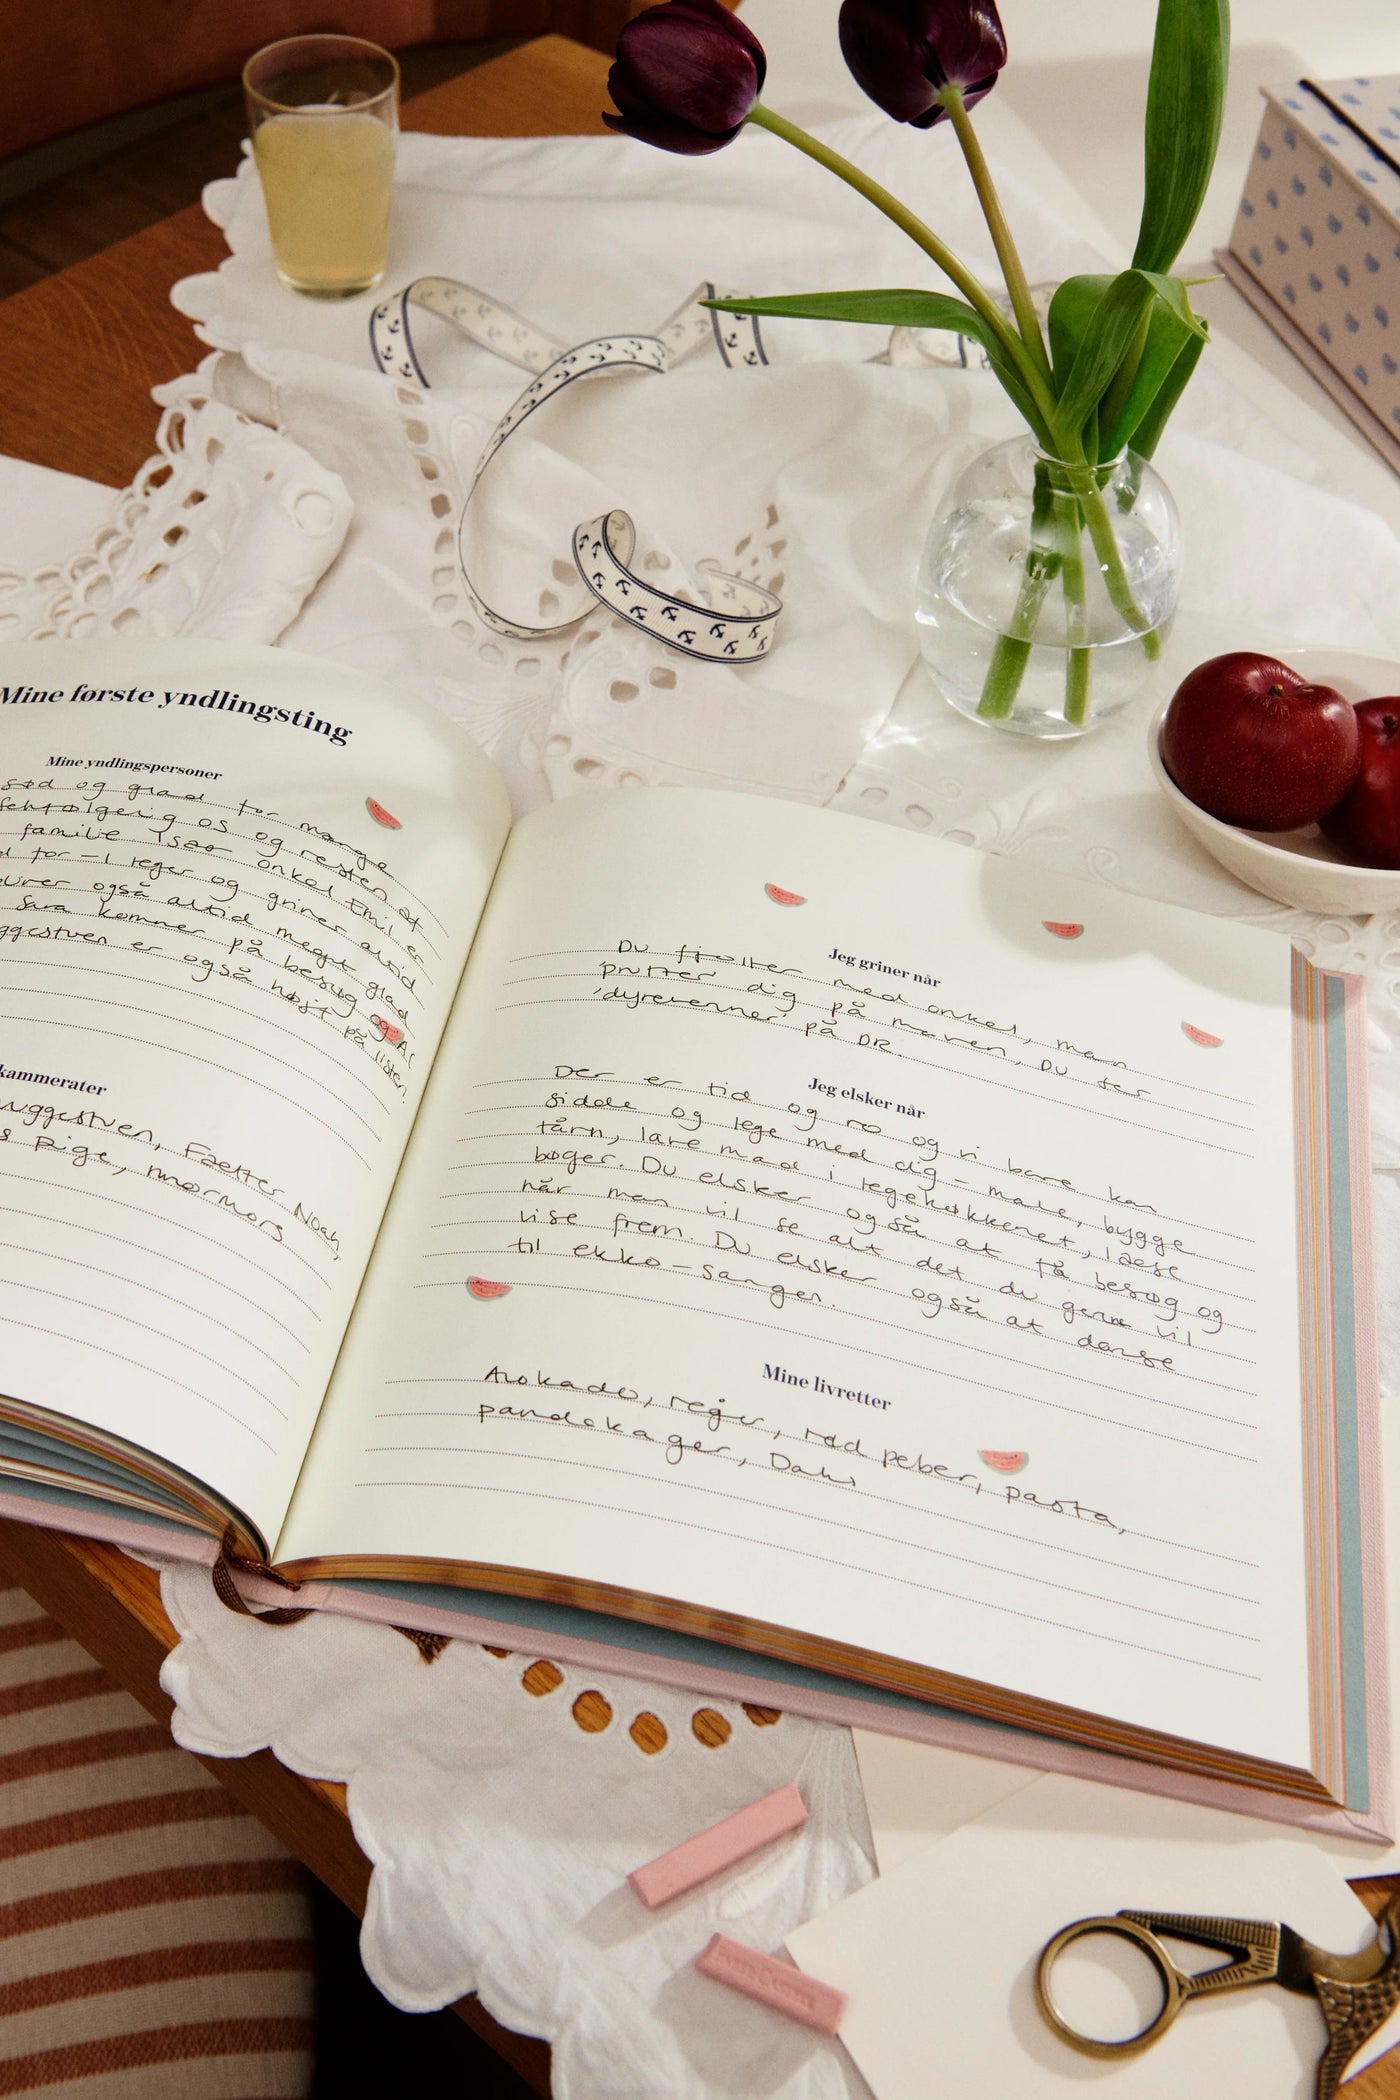 Mine første yndlingsting
Mine yndlingspersoner
sød og glad for mange
selvfølgelig os og resten af
familie Især onkel Emil er
d for - I leger og griner altid
også altid meget glad
Sara kommer på besøg og
vuggestuen er også højt på listen.
kammerater
vuggestuen, Fætter Noah,
s pige, mormors
Jeg griner når
Du fjoller med onkel, man
prutter dig på maven, Du ser
'dyrevenner' på DR.
Jeg elsker når
Der er tid og ro og vi bare kan
sidde og lege med dig - male, bygge
tårn, lave mad i legekøkkenet, læse
bøger. Du elsker også at få besøg og
når man vil se alt det du gerne vil
vise frem. Du elsker også at danse
til ekko-sangen.
Mine livretter
Avokado, rejer, rød peber, pasta,
pandekager, Dahl